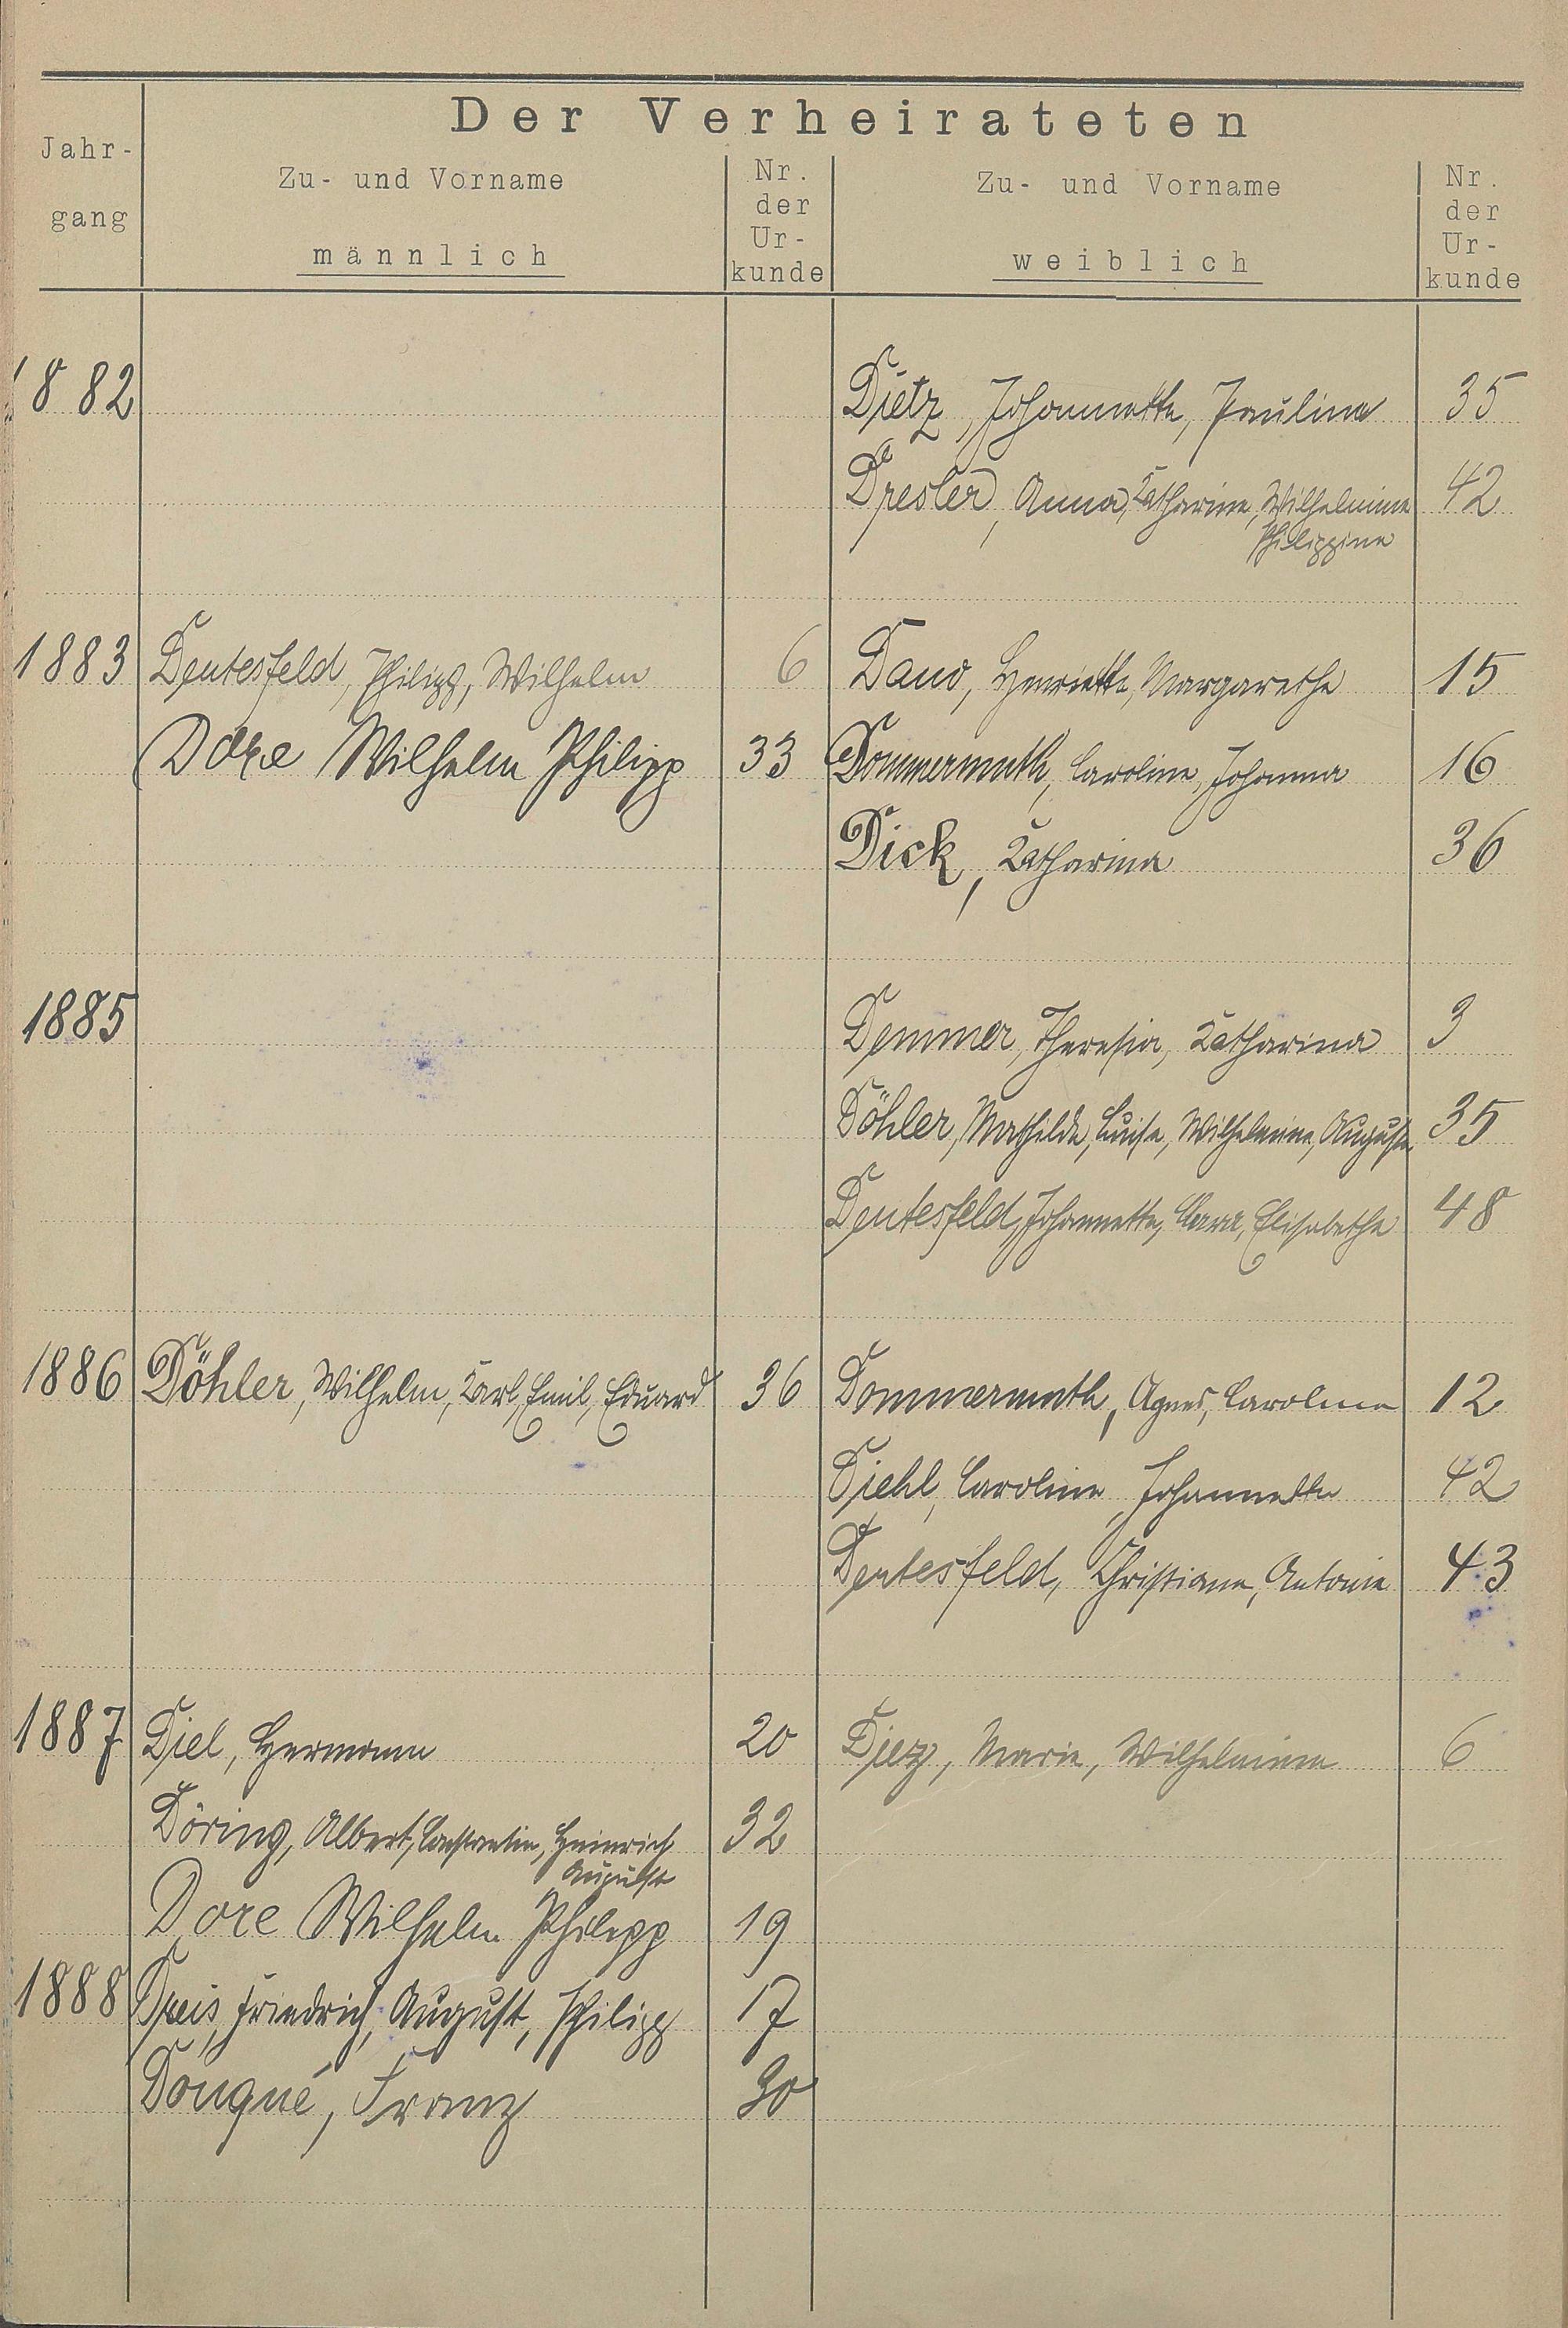 Der Verheirateten
Jahr-
gang
Zu- und Vorname
männlich
Nr.
der
Ur-
kunde
Zu- und Vorname
weiblich
Nr.
der
Ur-
kunde
1882 Dietz, Johannette, Pauline 35
Dresler, Anna, Katharine, Wilhelmine 42
Philippine
1883 Deutesfeld, Philipp, Wilhelm 6 Daum, Henriette, Margarethe 15
Wilhelm Philipp 33 Dommermuth, Caroline, Johanna 16
Dick, Katharina 36
1885 Demmer, Theresia, Katharina 3
Döhler, Mathilde, Luise, Wilhelmine, Auguste 35
Deutesfeld, Johannette, Clara, Elisabethe 48
1886 Döhler, Wilhelm, Karl, Emil, Eduard 36 Dommermuth, Agnes, Caroline 12
Diehl, Caroline, Johannette 42
Deutesfeld, Christiane, Antonie 43
1887 Diel, Hermann 20 Diez, Marie, Wilhelmine 6
Döring, Albert, Constantin, Heinrich 32
August
Dore Wilhelm Philipp 19
1888 Dreis, Friedrich, August, Philipp 17
Douqué, Franz 30